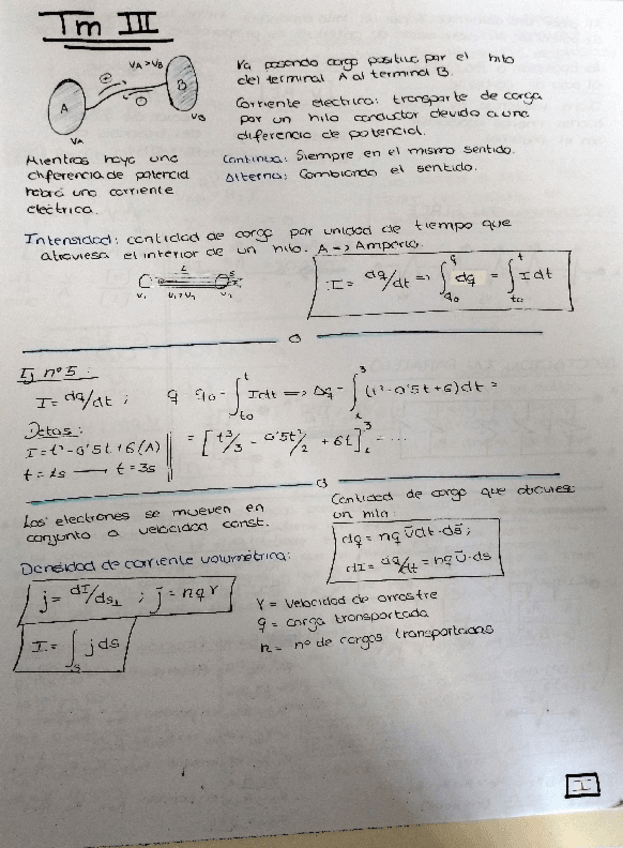 Tm III
VA>VB
A
B
VA
VB
Va pasando carga positiva por el hilo
del terminal A al terminal B.
Corriente electrica: transporte de carga
por un hilo conductor devido a una
diferencia de potencial.
Mientras haya una
diferencia de potencial
habrá una corriente
electrica.
Continua: Siempre en el mismo sentido.
Alterna: Cambiando el sentido.
Intensidad: cantidad de carga por unidad de tiempo que
atraviesa el interior de un hilo. A -> Amperio.
L
S
V₁ V₁>V₂ V₂
I = dq/dt => ∫q₀^q dq = ∫t₀^t I dt
Ej nº5:
I = dq/dt ; q - q₀ = ∫t₀^t I dt => Δq = ∫₁^3 (t² - 0'5t + 6) dt =
= [t³/3 - 0'5t²/2 + 6t]₁^3 = ...
Datos:
I = t² - 0'5t + 6 (A)
t = 1s → t = 3s
Los electrones se mueven en
conjunto a velocidad const.
Cantidad de carga que atravies
un hilo:
dq = nq v̄dt · ds̄ ;
dI = dq/dt = nq v̄ · ds
Densidad de corriente volumétrica:
j = dI/ds⊥ ; j̄ = nqv
I = ∫s j ds
V = velocidad de arrastre
q = carga transportada
n = nº de cargas transportadas
I